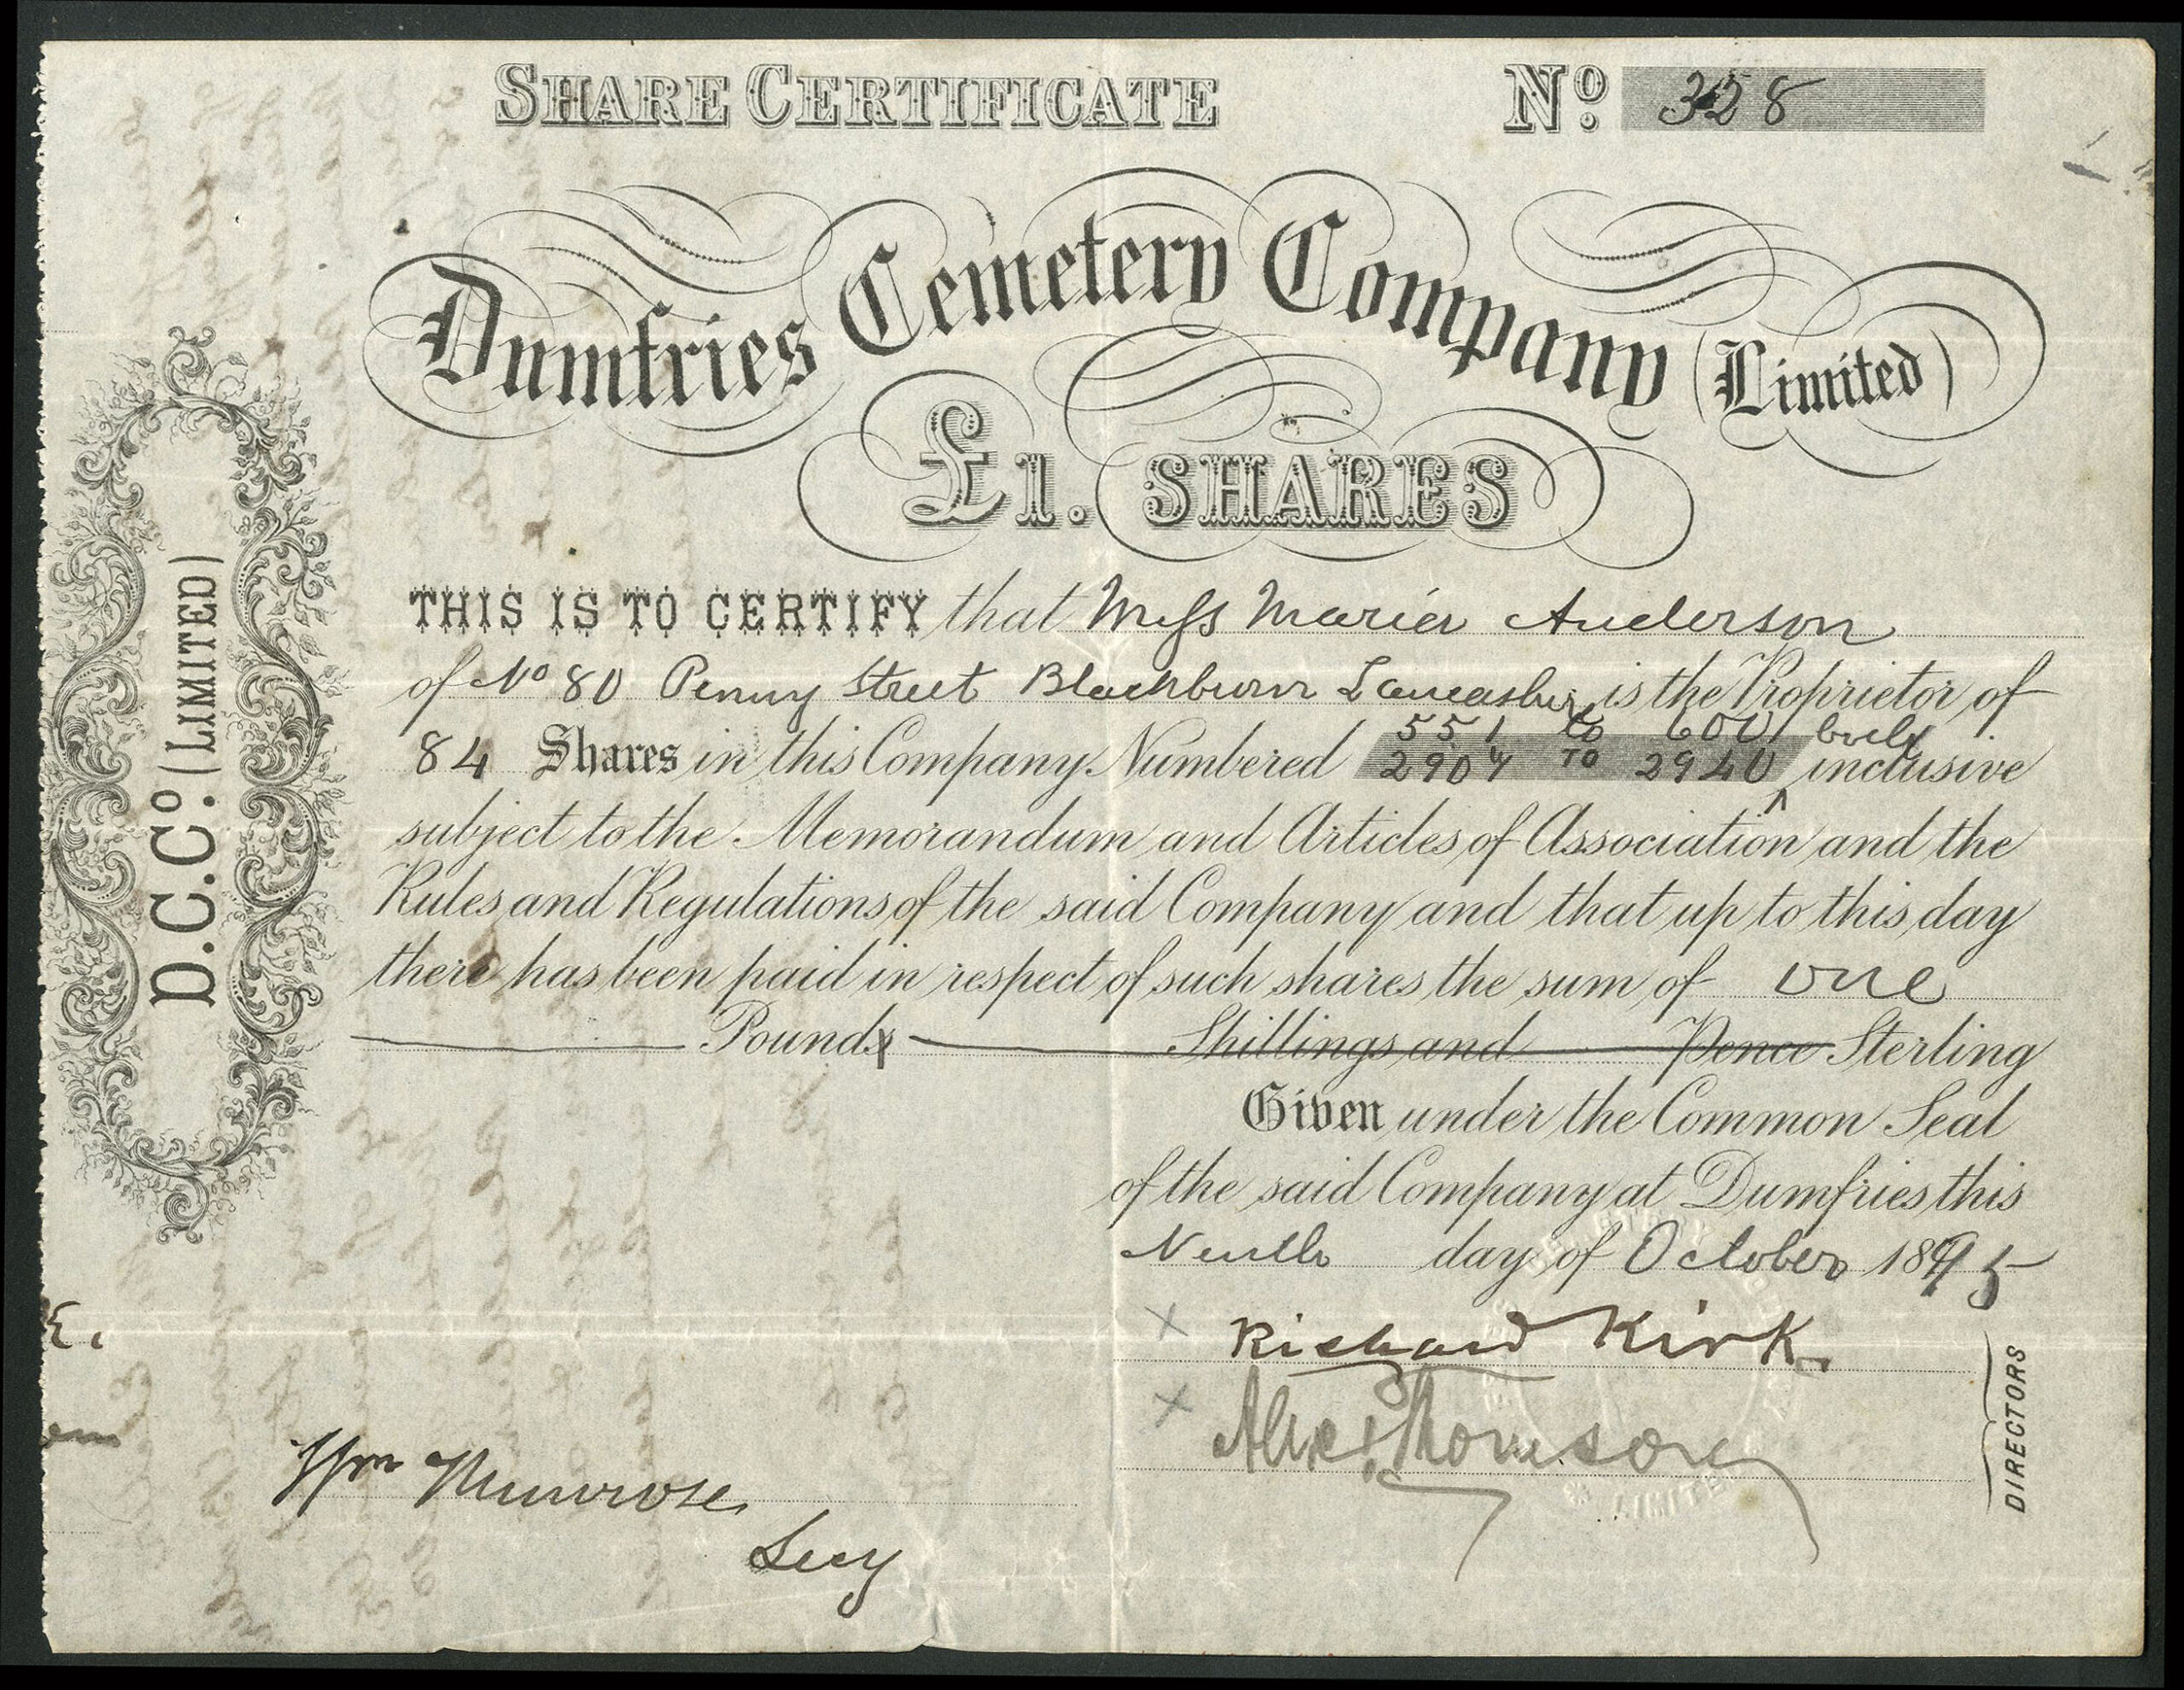 SHARE CERTIFICATE No. 328
Dumfries Cemetery Company (Limited)
£1. SHARES
D.C.Co. (LIMITED)
THIS IS TO CERTIFY that Miss Maria Anderson
of No 80 Penny Street Blackburn Lancashire is the Proprietor of
551 to 600 both
84 Shares in this Company Numbered 2907 TO 2940 inclusive
subject to the Memorandum and Articles of Association and the
Rules and Regulations of the said Company and that up to this day
there has been paid in respect of such shares the sum of one
Pounds Shillings and Pence Sterling
Given under the Common Seal
of the said Company at Dumfries this
Ninth day of October 1895
Richard Kirk
DIRECTORS
Wm
Secy
LIMITED